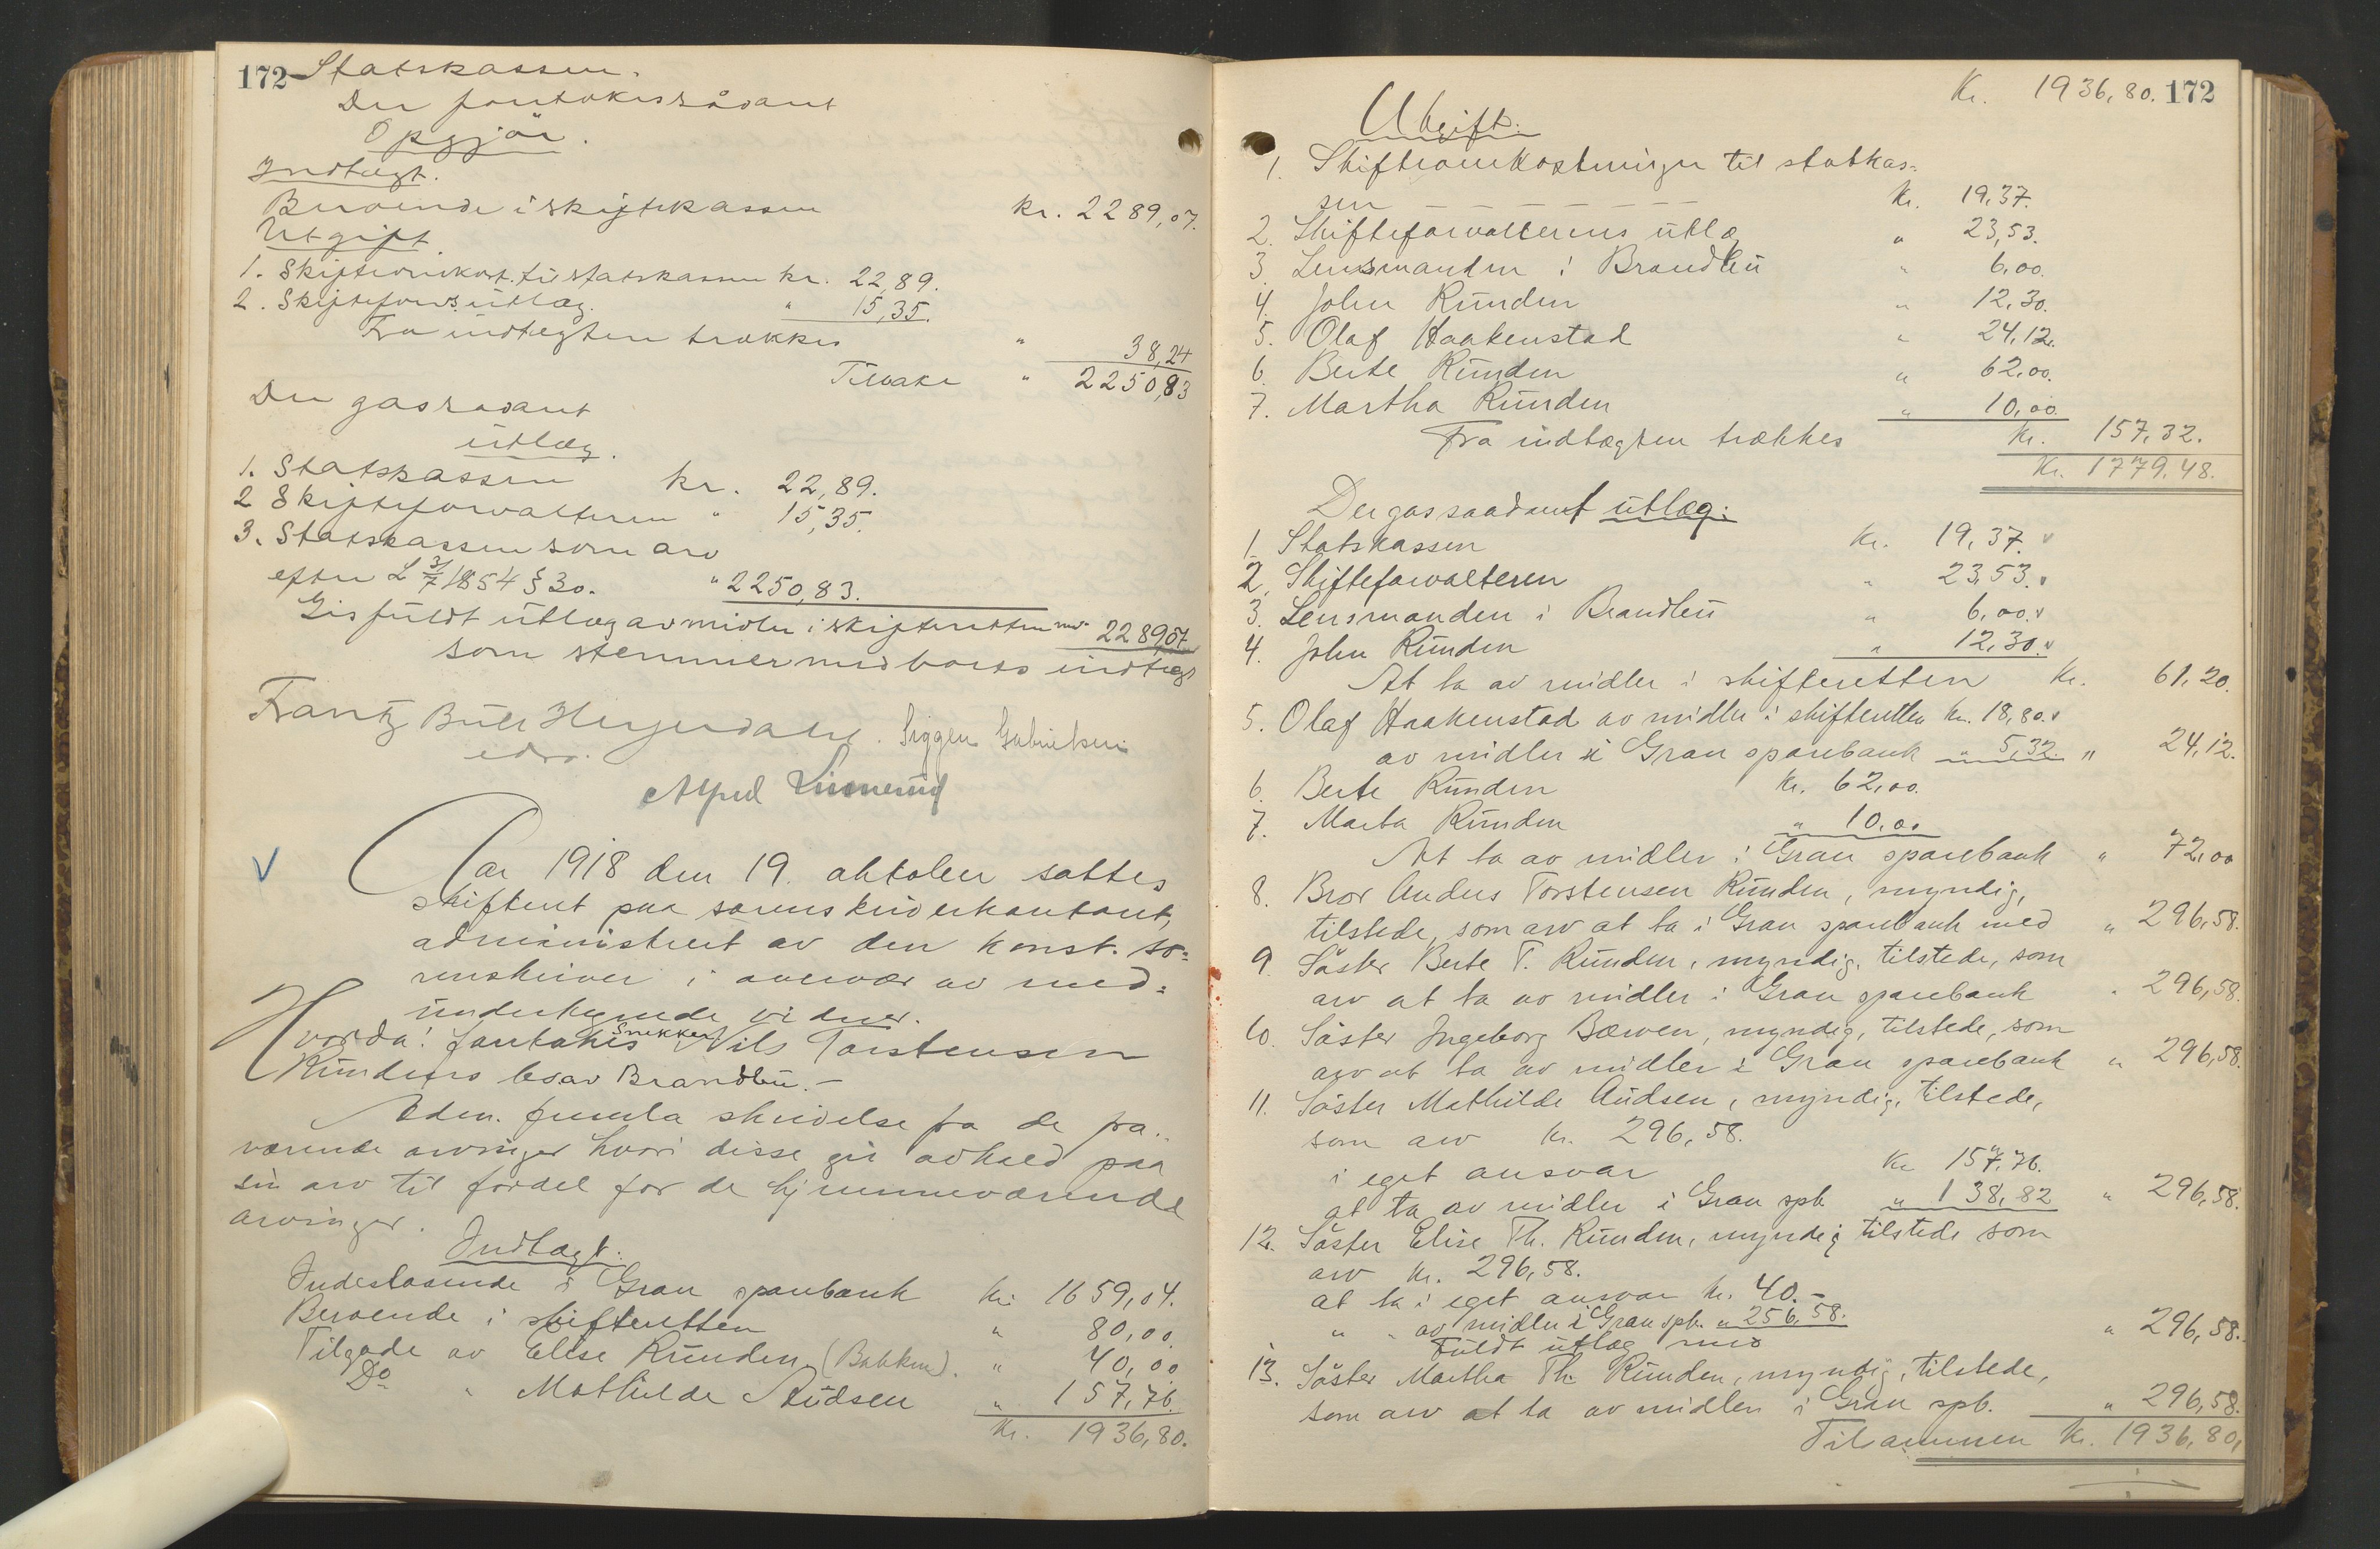 172 Statskassen.
Der foretokes sådant
Opgjör.
Indtægt.
Beroende i skiftekassen kr. 2289,07.
Utgift
1. Skifteomkost. til statskassen kr. 22,89.
2. Skifteforv.s utlæg. " 15,35.
Fra indtægten trækkes " 38,24
Tilbake " 2250,83
Der gaes sadant
utlæg.
1. Statskassen kr. 22,89.
2 Skifteforvalteren " 15,35.
3. Statskassen som arv
efter L 31/7 1854 § 30. " 2250,83.
Gis fuldt utlæg av midler i skifteretten med 2289,07
som stemmer med boets indtægt
Frantz Bull
edsv.
Siggen Gabrielsen
Alfred
V
Aar 1918 den 19. oktober sattes
skifteret paa sorenskriverkontoret,
administrert av den konst. so-
renskriver i overvær av med-
underskrevne vidner.
Hvorda: foretokes Snekker Nils Torstensen
Rundens bo av Brandbu. -
Adm. fremla skrivelse fra de fra-
værende arvinger hvori disse gir avkald paa
sin arv til fordel for de hjemmeværende
arvinger.
Indtægt.
Indestaaende i Gran sparebank kr. 1659,04.
Beroende i skifteretten " 80,00.
Tilgode av Elise Runden (Bakken). " 40,00
Do " Mathilde Audsen " 157,76.
Kr. 1936,80.
Kr. 1936,80. 172
Utgift.
1. Skifteomkostninger til statkas-
sen - - - - - - - Kr. 19,37.
2. Skifteforvalterens utlæ " 23,53.
3. Lensmanden i Brandbu " 6,00.
4. John Runden " 12,30.
5. Olaf Haakenstad " 24,12.
6. Berte Runden " 62,00.
7. Martha Runden " 10,00
Fra indtægten trækkes Kr. 157,32.
Kr. 1779,48.
Der gaes saadant utlæg:
1. Statskassen Kr. 19,37. v
2. Skifteforvalteren " 23,53. v
3. Lensmanden i Brandbu " 6,00. v
4. John Runden " 12,30. v
At ta av midler i skifteretten Kr. 61,20.
5. Olaf Haakenstad av midler i skifteretten kr. 18,80. v
av midler i Gran sparebank " 5,32. " 24,12.
6. Berte Runden Kr. 62,00.
7. Marta Runden " 10,00
At ta av midler i Gran sparebank " 72,00
8. Bror Anders Torstensen Runden, myndig,
tilstede, som arv at ta i Gran sparebank med " 296,58.
9. Söster Berte T. Runden, myndig, tilstede, som
arv at ta av midler i Gran sparebank " 296,58.
10. Söster Ingeborg Bæwen, myndig, tilstede, som
arv at ta av midler i Gran sparebank " 296,58.
11. Söster Mathilde Audsen, myndig, tilstede,
som arv kr. 296,58.
i eget ansvar Kr 157,76.
at ta av midler i Gran spb. " 138,82 " 296,58.
12. Söster Elise Th. Runden, myndig tilstede som
arv kr. 296,58.
at ta i eget ansvar kr. 40.-
" " av midler i Gran spb. " 256,58.
Fuldt utlæg med " 296,58.
13. Söster Martha Th. Runden, myndig, tilstede,
som arv at ta av midler i Gran spb. " 296,58.
Tilsammen Kr. 1936,80,